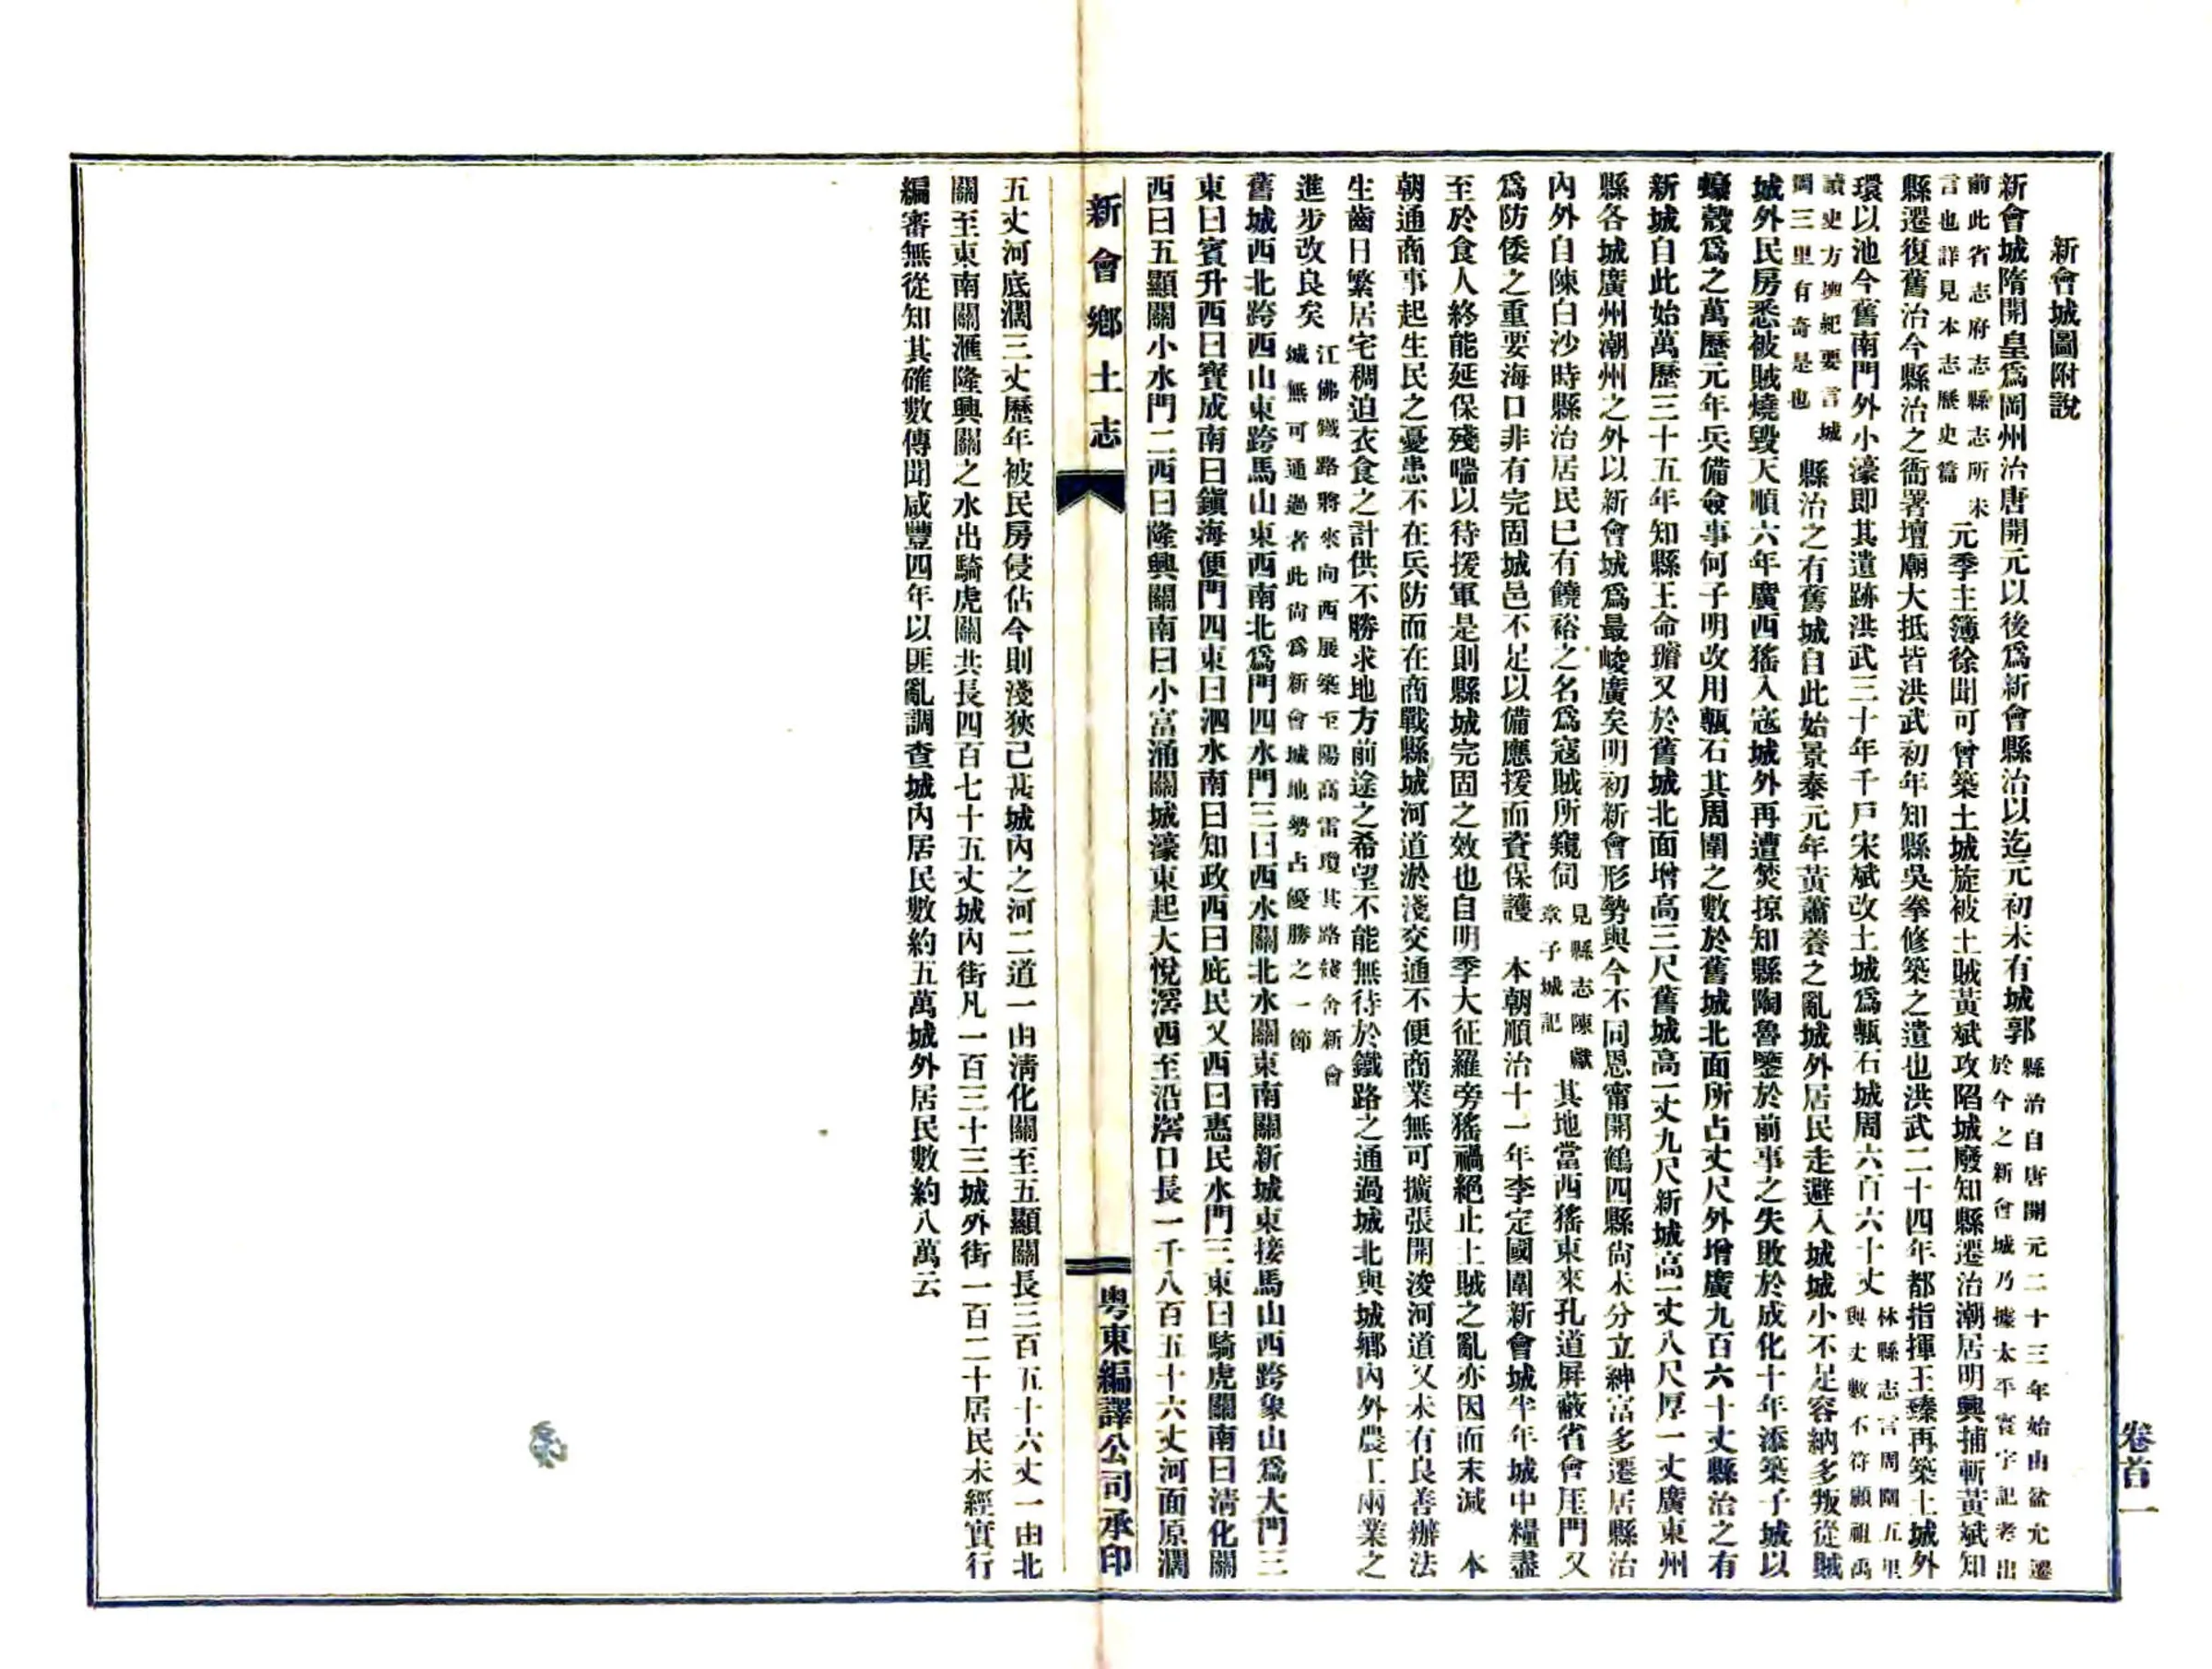 新會城圖附說
新會城隋開皇爲岡州治唐開元以後爲新會縣治以迄元初未有城郭縣治自唐開元二十三年始由盆允遷於今之新會城乃據太平寰宇記考出
前此省志府志縣志所未言也詳見本志歷史篇元季主簿徐聞可曾築土城旋被土賊黃斌攻陷城廢知縣遷治潮居明興捕斬黃斌知
縣遷復舊治今縣治之衙署壇廟大抵皆洪武初年知縣吳拳修築之遺也洪武二十四年都指揮王臻再築土城外
環以池今舊南門外小濠即其遺跡洪武三十年千戶宋斌改土城爲甎石城周六百六十丈林縣志言周圍五里與丈數不符顧祖禹
讀史方輿紀要言城周三里有奇是也縣治之有舊城自此始景泰元年黃蕭養之亂城外居民走避入城城小不足容納多叛從賊
城外民房悉被賊燒毀天順六年廣西猺入寇城外再遭焚掠知縣陶魯鑒於前事之失敗於成化十年添築子城以
蠔殼爲之萬歷元年兵備僉事何子明改用甎石其周圍之數於舊城北面所占丈尺外增廣九百六十丈縣治之有
新城自此始萬歷三十五年知縣王命璿又於舊城北面增高三尺舊城高一丈九尺新城高一丈八尺厚一丈廣東州
縣各城廣州潮州之外以新會城爲最峻廣矣明初新會形勢與今不同恩甯開鶴四縣尙未分立紳富多遷居縣治
內外自陳白沙時縣治居民已有饒裕之名爲寇賊所窺伺見縣志陳獻章子城記其地當西猺東來孔道屏蔽省會厓門又
爲防倭之重要海口非有完固城邑不足以備應援而資保護　本朝順治十一年李定國圍新會城半年城中糧盡
至於食人終能延保殘喘以待援軍是則縣城完固之效也自明季大征羅旁猺禍絕止土賊之亂亦因而末減　本
朝通商事起生民之憂患不在兵防而在商戰縣城河道淤淺交通不便商業無可擴張開淩河道又未有良善辦法
生齒日繁居宅稠迫衣食之計供不勝求地方前途之希望不能無待於鐵路之通過城北與城鄉內外農工兩業之
進步改良矣江佛鐵路將來向西展築至陽高雷瓊其路綫舍新會城無可通過者此尙爲新會城地勢占優勝之一節
舊城西北跨西山東跨馬山東西南北爲門四水門三曰西水關北水關東南關新城東接馬山西跨象山爲大門三
東曰賓升西曰寶成南曰鎭海便門四東曰泗水南曰知政西曰庇民又西曰惠民水門三東曰騎虎關南曰淸化關
西曰五顯關小水門二西曰隆興關南曰小富涌關城濠東起大悅滘西至沿滘口長一千八百五十六丈河面原濶
新會鄉土志
粤東編譯公司承印
五丈河底濶三丈歷年被民房侵佔今則淺狹已甚城內之河二道一由淸化關至五顯關長三百五十六丈一由北
關至東南關滙隆興關之水出騎虎關共長四百七十五丈城內街凡一百三十三城外街一百二十居民未經實行
編審無從知其確數傳聞咸豐四年以匪亂調查城內居民數約五萬城外居民數約八萬云
卷首一